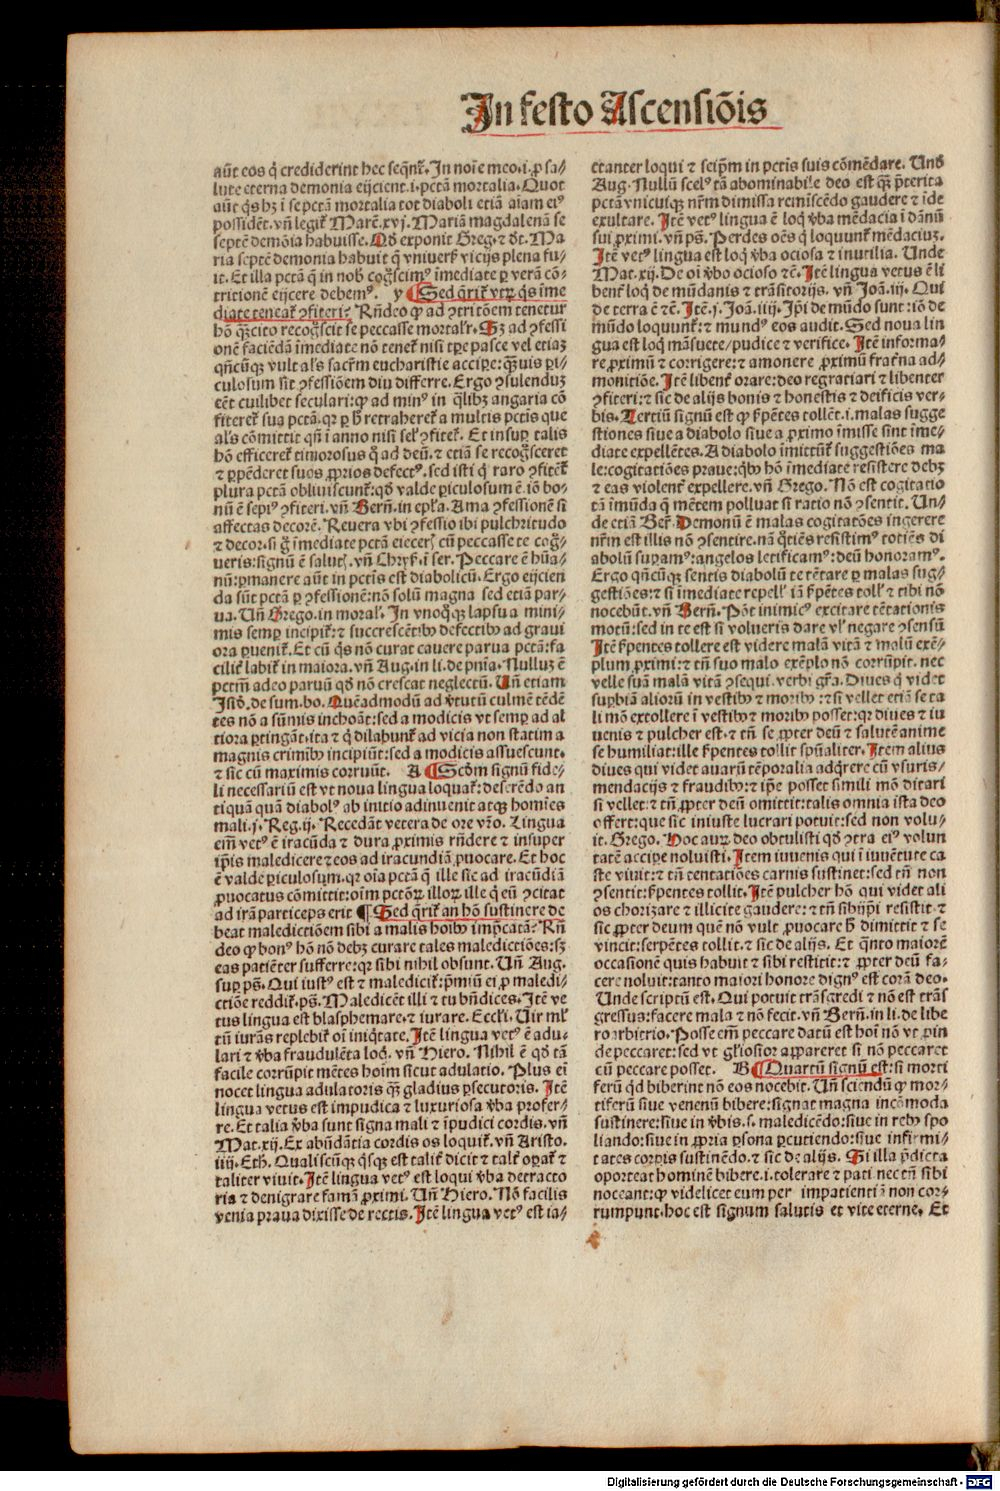 In festo Ascensiõis
aũt eos q̃ crediderint hec seqñt̃. In noĩe meo .i. ꝓ sa⸗
lute eterna demonia eijcient .i. pctã mortalia. Quot
aũt q̃s hʒ ĩ se pctã mortalia tot diaboli etiã aĩam eiꝰ
possidẽt. vñ legit̃ Marc̃. xvj. Mariã magdalenã se
septẽ demõia habuisse. Qd̃ exponit Greg. ⁊ dt̃. Ma
ria septẽ demonia habuit q̃ vniuers̃ vicijs plena fu⸗
it. Et illa pctã q̃ in nob̃ cog̃scimꝰ ĩmediate ꝑ verã cõ⸗
tritionẽ eijcere debemꝰ. y ¶ Sed q̃rit̃ vtꝝ q̃s ĩme
diate teneat̃ ꝯfiteri? Rñdeo ꝙ ad ꝯtritõem tenetur
hõ q̃ꝫcito recog̃scit se peccasse mortalr̃. Sʒ ad ꝯfessi
onẽ faciẽdã ĩmediate nõ tenet̃ nisi tꝑe pasce vel etiaʒ
qñcũqꝫ vult al̃s sacr̃m eucharistie accipe: q̃ꝫuis ꝑi⸗
culosum sit ꝯfessiõem diu differre. Ergo ꝯsulenduʒ
eẽt cuilibet seculari: ꝙ ad minꝰ in q̃libʒ angaria cõ
fiteret̃ sua pctã. qꝛ ꝑ h̃ retraheret̃ a multis pctis que
al̃s cõmittit qñ ĩ anno nisi sel̃ ꝯfitet̃. Et insuꝑ talis
hõ efficeret̃ timorosus q̃ ad deũ. ⁊ etiã se recog̃sceret
⁊ ꝑpẽderet suos ꝓprios defectꝰ. sed isti q̃ raro ꝯfitẽt̃
plura pctã obliuiscunt̃: qd̃ valde ꝑiculosum ẽ. iõ bo⸗
nũ ẽ sepiꝰ ꝯfiteri. vñ Bern̄. in epl̃a. Ama ꝯfessionẽ si
affectas decorẽ. Reuera vbi ꝯfessio ibi pulchritudo
⁊ decor. si g̃ ĩmediate pctã eiecer̃ cũ peccasse te cog̃⸗
ueris: signũ ẽ salut̃. vñ Chrys̃. ĩ ser. Peccare ẽ hũa⸗
nũ: ꝑmanere aũt in pctis est diabolicũ. Ergo eijcien
da sũt pctã ꝑ ꝯfessionẽ: nõ solũ magna sed etiã par⸗
ua. Uñ Grego. in moral̃. In vnoq̃qꝫ lapsu a mini⸗
mis semꝑ incipit̃: ⁊ succrescẽtibꝰ defectibꝰ ad graui
ora ꝑuenit̃. Et cũ q̃s nõ curat cauere parua pctã: fa
cilit̃ labit̃ in maiora. vñ Aug. in li. de pñia. Nulluʒ ẽ
pctm̃ adeo paruũ qd̃ nõ crescat neglectũ. Uñ etiam
Isid̃. de sum. bo. Quẽadmodũ ad v̓tutũ culmẽ tẽdẽ
tes nõ a sũmis inchoãt: sed a modicis vt semꝑ ad al
tiora ꝑtingãt. ita ⁊ q̃ dilabunt̃ ad vicia non statim a
magnis crimĩbꝰ incipiũt: sed a modicis assuescunt.
⁊ sic cũ maximis corruũt. A ¶ Scd̃m signũ fide⸗
li necessariũ est vt noua lingua loquat̃: deserẽdo an
tiquã quã diabolꝰ ab initio adinuenit atqꝫ homĩes
mali. j. Reg. ij. Recedãt vetera de ore vr̃o. Lingua
em̃ vetꝰ ẽ iracũda ⁊ dura ꝓximis rñdere ⁊ insuper
ip̃is maledicere ⁊ eos ad iracundiã ꝓuocare. Et hoc
ẽ valde ꝑiculosum. qꝛ oĩa pctã q̃ ille sic ad iracũdiã
ꝓuocatus cõmittit: oĩm pctõꝝ illoꝝ ille q̃ eũ ꝯcitat
ad irã particeps erit ¶ Sed q̃rit̃ an hõ sustinere de
beat maledictiõem sibi a malis hoĩbꝰ imp̃catã? Rñ
deo ꝙ bonꝰ hõ nõ debʒ curare tales maledictiões: sʒ
eas patiẽter sufferre: qꝛ sibi nihil obsunt. Uñ Aug.
suꝑ ps̃. Qui iustꝰ est ⁊ maledicit̃: p̃miũ ei ꝓ maledi⸗
ctiõe reddit̃. ps̃. Maledicẽt illi ⁊ tu bñdices. Itẽ ve
tus lingua est blasphemare. ⁊ iurare. Eccl̃i. Uir ml̃
tũ iurãs replebit̃ oĩ iniq̃tate. Itẽ lingua vetꝰ ẽ adu⸗
lari ⁊ v̓ba fraudulẽta loq̃. vñ Hiero. Nihil ẽ qd̃ tã
facile corrũpit mẽtes hoĩm sicut adulatio. Plus eĩ
nocet lingua adulatoris q̃ꝫ gladius ꝑsecutoris. Itẽ
lingua vetus est impudica ⁊ luxuriosa v̓ba profer⸗
re. Et talia v̓ba sunt signa mali ⁊ ĩpudici cordis. vñ
Mat. xij. Ex abũdãtia cordis os loquit̃. vñ Aristo.
iiij. Eth̃. Qualiscũqꝫ q̃sqꝫ est talit̃ dicit ⁊ talit̃ oꝑat̃ ⁊
taliter viuit. Itẽ lingua vetꝰ est loqui v̓ba detracto
ria ⁊ denigrare famã ꝓximi. Uñ Hiero. Nõ facilis
venia praua dixisse de rectis. Itẽ lingua vetꝰ est ia⸗
ctanter loqui ⁊ seip̃m in pctis suis cõmẽdare. Und̃
Aug. Nullũ scelꝰ tã abominabile deo est q̃ꝫ p̃terita
pctã vnicuiqꝫ nr̃m dimissa remĩscẽdo gaudere ⁊ ĩde
exultare. Itẽ vetꝰ lingua ẽ loq̃ v̓ba mẽdacia ĩ dãnũ
sui ꝓximi. vñ ps̃. Perdes oẽs q̃ loquunt̃ mẽdaciuʒ.
Itẽ vetꝰ lingua est loq̃ v̓ba ociosa ⁊ inutilia. Unde
Mat. xij. De oĩ v̓bo ocioso ⁊c̃. Itẽ lingua vetus ẽ li
bent̃ loq̃ de mũdanis ⁊ trãsitorijs. vñ Joã. iij. Qui
de terra ẽ ⁊c̃. Itẽ. j. Joã. iiij. Ip̃i de mũdo sunt: iõ de
mũdo loquunt̃: ⁊ mundꝰ eos audit. Sed noua lin
gua est loq̃ mãsuete/ pudice ⁊ verifice. Itẽ informa⸗
re ꝓximũ ⁊ corrigere: ⁊ amonere ꝓximũ frat̃na ad⸗
monitiõe. Itẽ libent̃ orare: deo regratiari ⁊ libenter
ꝯfiteri: ⁊ sic de alijs bonis ⁊ honestis ⁊ deificis ver⸗
bis. Tertiũ signũ est ꝙ s̃pentes tollẽt .i. malas sugge
stiones siue a diabolo siue a ꝓximo ĩmisse sint ĩme⸗
diate expellẽtes. A diabolo ĩmittũt̃ suggestiões ma
le: cogitatiões praue: q̃bꝰ hõ ĩmediate resistere debʒ
⁊ eas violent̃ expellere. vñ Grego. Nõ est cogitatio
tã ĩmũda q̃ mẽtem polluat si ratio nõ ꝯsentit. Un⸗
de etiã Ber̃. Demonũ ẽ malas cogitatões ingerere
nr̃m est illis nõ ꝯsentire. nã q̃tiẽs resistimꝰ totiẽs di
abolũ suꝑamꝰ: angelos letificamꝰ: deũ honoramꝰ.
Ergo qñcũqꝫ sentis diabolũ te tẽtare ꝑ malas sug⸗
gestiões: ⁊ si ĩmediate repell̃ iã s̃pẽtes toll̃ ⁊ tibi nõ
nocebũt. vñ Bern̄. Põt inimicꝰ excitare tẽtationis
motũ: sed in te est si volueris dare vl̃ negare ꝯsensũ
Itẽ s̃pentes tollere est videre malã vitã ⁊ malũ exẽ⸗
plum ꝓximi: ⁊ tñ suo malo exẽplo nõ corrũpit̃. nec
velle suã malã vitã ꝯsequi. verbi gr̃a. Diues q̃ videt
suꝑbiã aliorũ in vestibꝰ ⁊ moribꝰ: ⁊ si vellet etiã se ta
li mõ extollere ĩ vestibꝰ ⁊ moribꝰ posset: qꝛ diues ⁊ iu
uenis ⁊ pulcher est. ⁊ tñ se ꝓpter deũ ⁊ salutẽ anime
se humiliat: ille s̃pentes tollit spũaliter. Item alius
diues qui videt auarũ tẽporalia adq̃rere cũ vsuris/
mendacijs ⁊ fraudibꝰ: ⁊ ip̃e posset simili mõ ditari
si vellet: ⁊ tñ ꝓpter deũ omittit: talis omnia ista deo
offert: que sic iniuste lucrari potuit: sed non volu⸗
it. Grego. Hoc auꝝ deo obtulisti qd̃ ꝯtra eiꝰ volun
tatẽ accipe noluisti. Item iuuenis qui ĩ iuuẽtute ca
ste viuit: ⁊ tñ tentatiões carnis sustinet: sed tñ non
ꝯsentit: s̃pentes tollit. Itẽ pulcher hõ qui videt ali
os chorizare ⁊ illicite gaudere: ⁊ tñ sibijp̃i resistit ⁊
sic ꝓpter deum quẽ nõ vult ꝓuocare h̃ dimittit ⁊ se
vincit: serpẽtes tollit. ⁊ sic de alijs. Et q̃nto maiorẽ
occasionẽ quis habuit ⁊ sibi restitit: ⁊ ꝓpter deũ fa⸗
cere noluit: tanto maiori honore dignꝰ est corã deo.
Unde scriptũ est. Qui potuit trãsgredi ⁊ nõ est trãs
gressus: facere mala ⁊ nõ fecit. vñ Bern̄. in li. de libe
ro arbitrio. Posse em̃ peccare datũ est hoĩ nõ vt ꝓin
de peccaret: sed vt gl̃iosior apꝑareret si nõ peccaret
cũ peccare posset. B ¶ Quartũ signũ est: si morti
ferũ qd̃ biberint nõ eos nocebit. Uñ sciendũ ꝙ mor⸗
tiferũ siue venenũ bibere: signat magna incõmoda
sustinere: siue in v̓bis. s. maledicẽdo: siue in rebꝰ spo
liando: siue in ꝓpria ꝑsona ꝑcutiendo: siue infirmi⸗
tates corꝑis sustinẽdo. ⁊ sic de alijs. Si illa p̃dicta
oporteat hominẽ bibere .i. tolerare ⁊ pati nec tñ sibi
noceant: ꝙ videlicet eum per impatientiã non cor⸗
rumpunt. hoc est signum salutis et vite eterne. Et
Digitalisierung gefördert durch die Deutsche Forschungsgemeinschaft - DFG